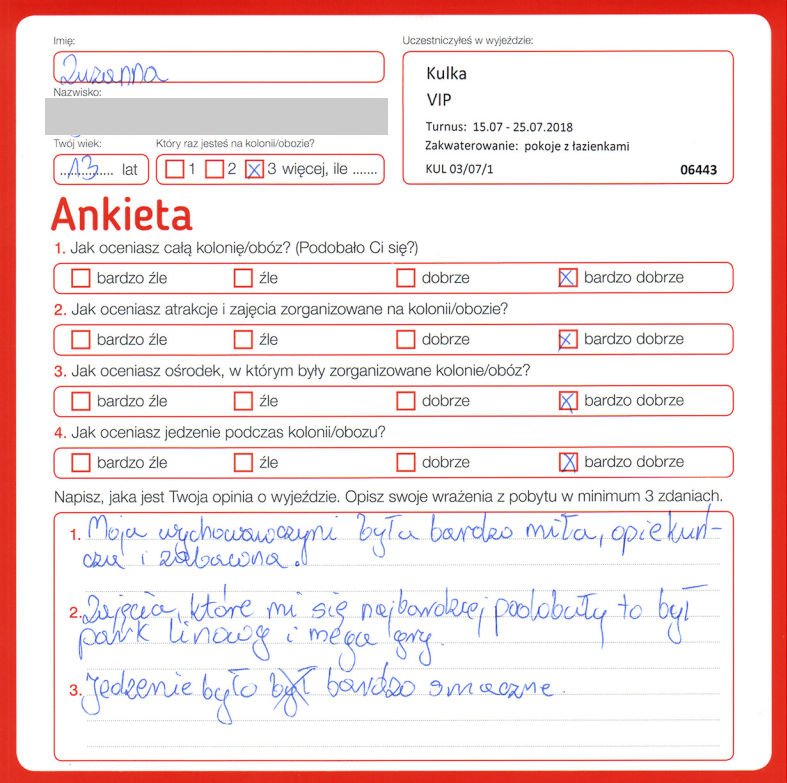 Imię:
Zuzanna
Nazwisko:
Twój wiek:
13 lat
Który raz jesteś na kolonii/obozie?
1 2 3 więcej, ile .......
Uczestniczyłeś w wyjeździe:
Kulka
VIP
Turnus: 15.07 - 25.07.2018
Zakwaterowanie: pokoje z łazienkami
KUL 03/07/1 06443
Ankieta
1. Jak oceniasz całą kolonię/obóz? (Podobało Ci się?)
bardzo źle źle dobrze bardzo dobrze
2. Jak oceniasz atrakcje i zajęcia zorganizowane na kolonii/obozie?
bardzo źle źle dobrze bardzo dobrze
3. Jak oceniasz ośrodek, w którym były zorganizowane kolonie/obóz?
bardzo źle źle dobrze bardzo dobrze
4. Jak oceniasz jedzenie podczas kolonii/obozu?
bardzo źle źle dobrze bardzo dobrze
Napisz, jaka jest Twoja opinia o wyjeździe. Opisz swoje wrażenia z pobytu w minimum 3 zdaniach.
1. Moja wychowawczyni była bardzo miła, opiekuń-
cza i zabawna.
2. Zajęcia, które mi się najbardziej podobały to był
park linowy i mega gry.
3. Jedzenie było był bardzo smaczne.